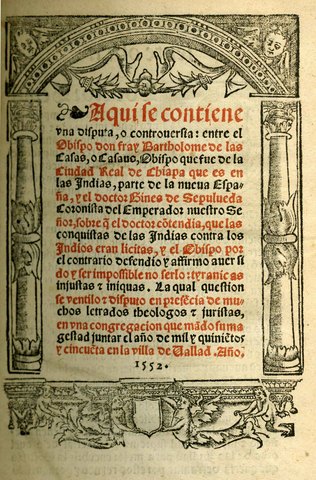 Aqui se contiene
vna disputa, o controuersia: entre el
Obispo don fray Bartholome de las
Casas, o Casaus, Obispo que fue de la
Ciudad Real de Chiapa que es en
las Indias, parte de la nueua Espa-
ña, y el doctor Gines de Sepulueda
Coronista del Emperador nuestro Se-
ñor, sobre q̃ el doctor cõtendia, que las
conquistas de las Indias contra los
Indios eran licitas, y el Obispo por
el contrario defendio y affirmo auer si
do y ser impossible no serlo: tyranicas
injustas & iniquas. La qual question
se vẽtilo & disputo en presẽcia de mu-
chos letrados theologos & juristas,
en vna congregacion que mãdo su ma
gestad juntar el año de mil y quiniẽtos
y cincuẽta en la villa de Vallad. Año.
1552.